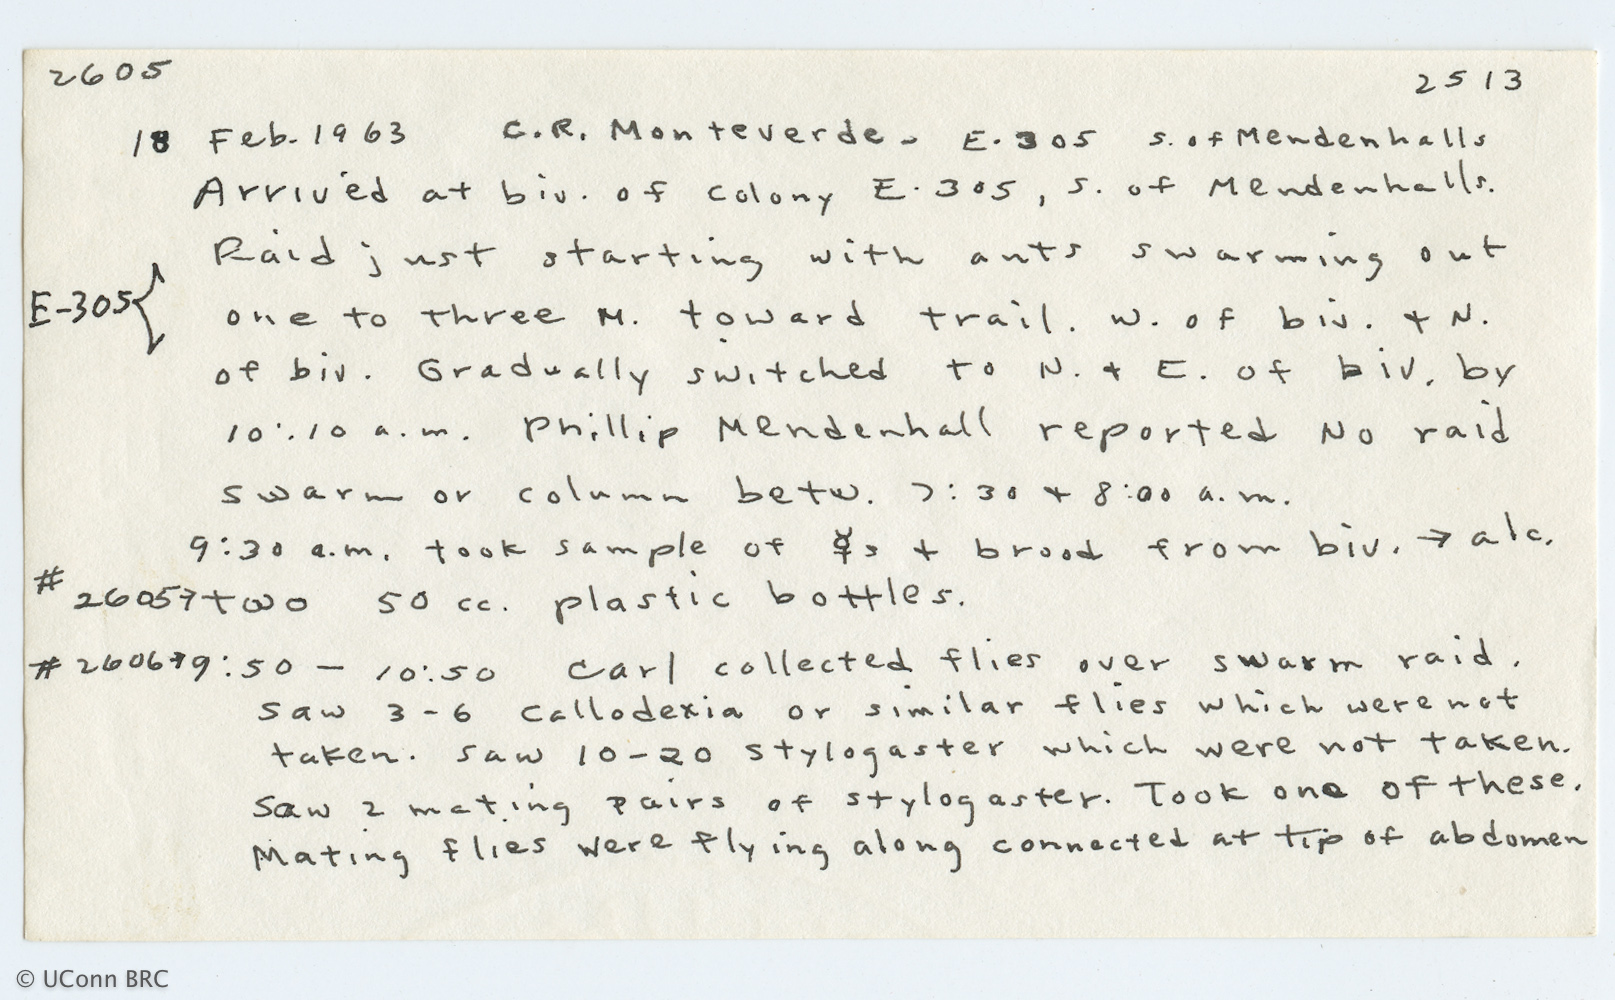 2605 2513
18 Feb. 1963 C.R. Monteverde - E-305 S. of Mendenhalls
Arrived at biv. of colony E-305, S. of Mendenhalls.
Raid just starting with ants swarming out
E-305 { one to three M. toward trail. W. of biv. + N.
of biv. Gradually switched to N. + E. of biv. by
10:10 a.m. Phillip Mendenhall reported No raid
swarm or column betw. 7:30 + 8:00 a.m.
9:30 a.m. took sample of ☿s + brood from biv. → alc.
# 2605→ two 50 cc. plastic bottles.
# 2606→ 9:50 – 10:50 Carl collected flies over swarm raid.
Saw 3-6 Callodexia or similar flies which were not
taken. Saw 10-20 Stylogaster which were not taken.
Saw 2 mating pairs of stylogaster. Took one of these.
Mating flies were flying along connected at tip of abdomen
© UConn BRC